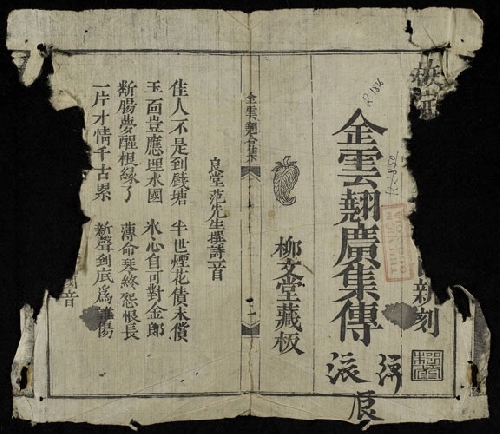 新刻
金雲翹廣集傳
柳文堂藏板
良堂范先生撰詩一首
佳人不是到錢塘 半世煙花債未償
玉面豈應埋水國 氷心自可對金郎
断腸夢醒根緣了 薄命琴終怨恨長
一片才情千古累 新聲到底為誰傷
國音